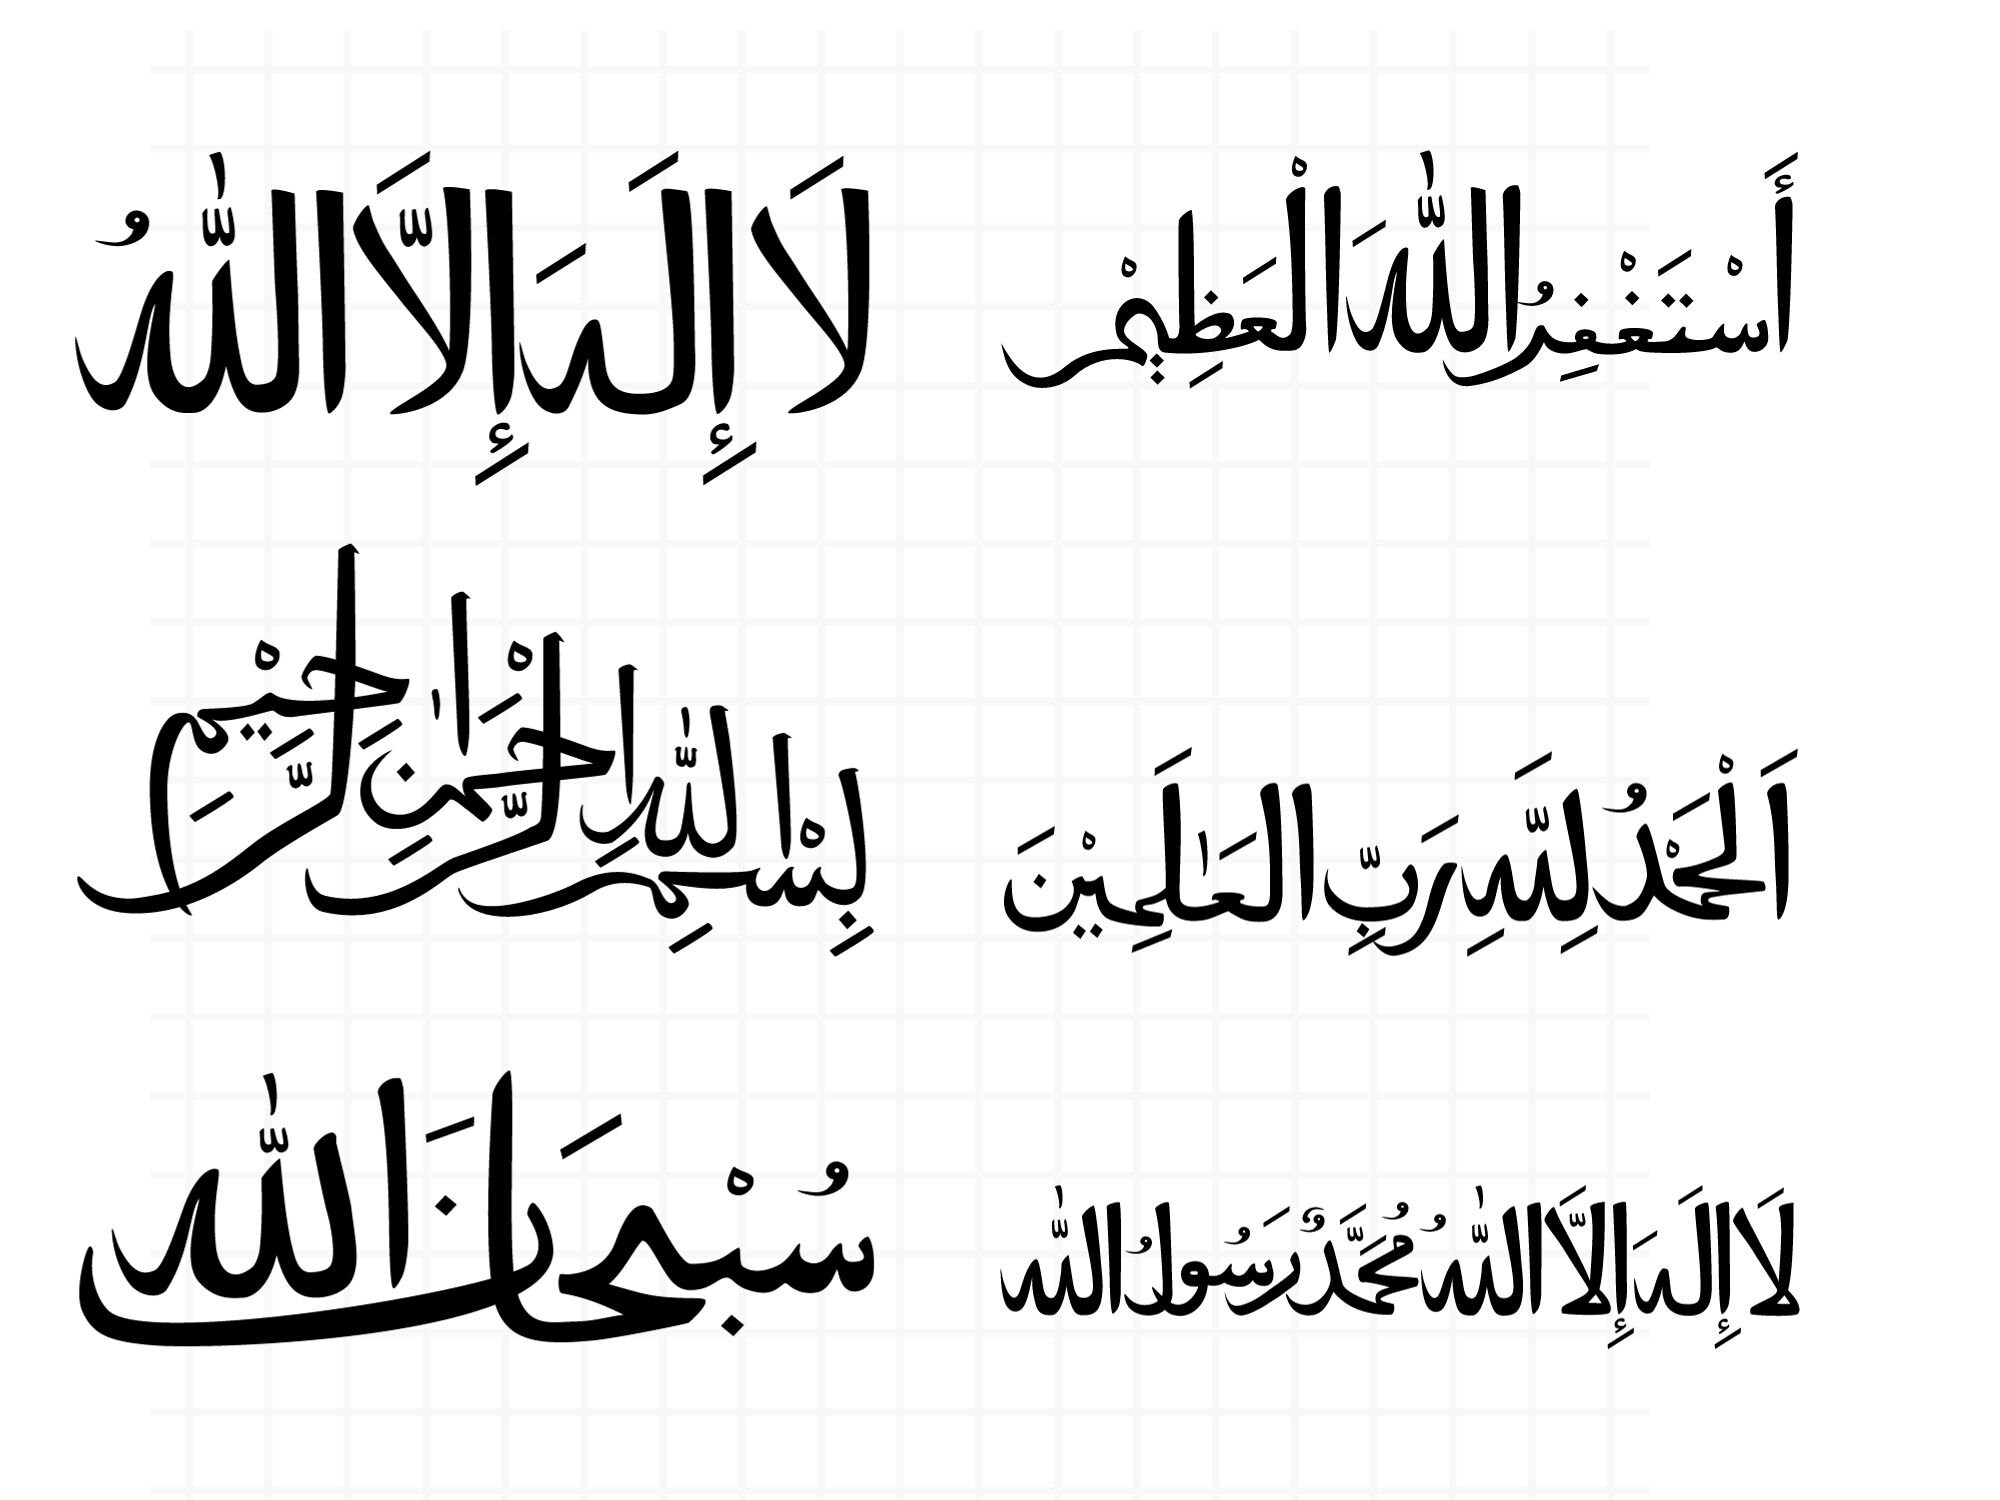 أَسْتَغْفِرُ اللّٰهَ الْعَظِيْمْ
لَا إِلَهَ إِلَّا اللّٰهُ
اَلْحَمْدُ لِلَّهِ رَبِّ الْعَالَمِيْنَ
بِسْمِ اللّٰهِ الرَّحْمٰنِ الرَّحِيْمْ
لَا إِلَهَ إِلَّا اللّٰهُ مُحَمَّدٌ رَسُولُ اللّٰه
سُبْحَانَ اللّٰه